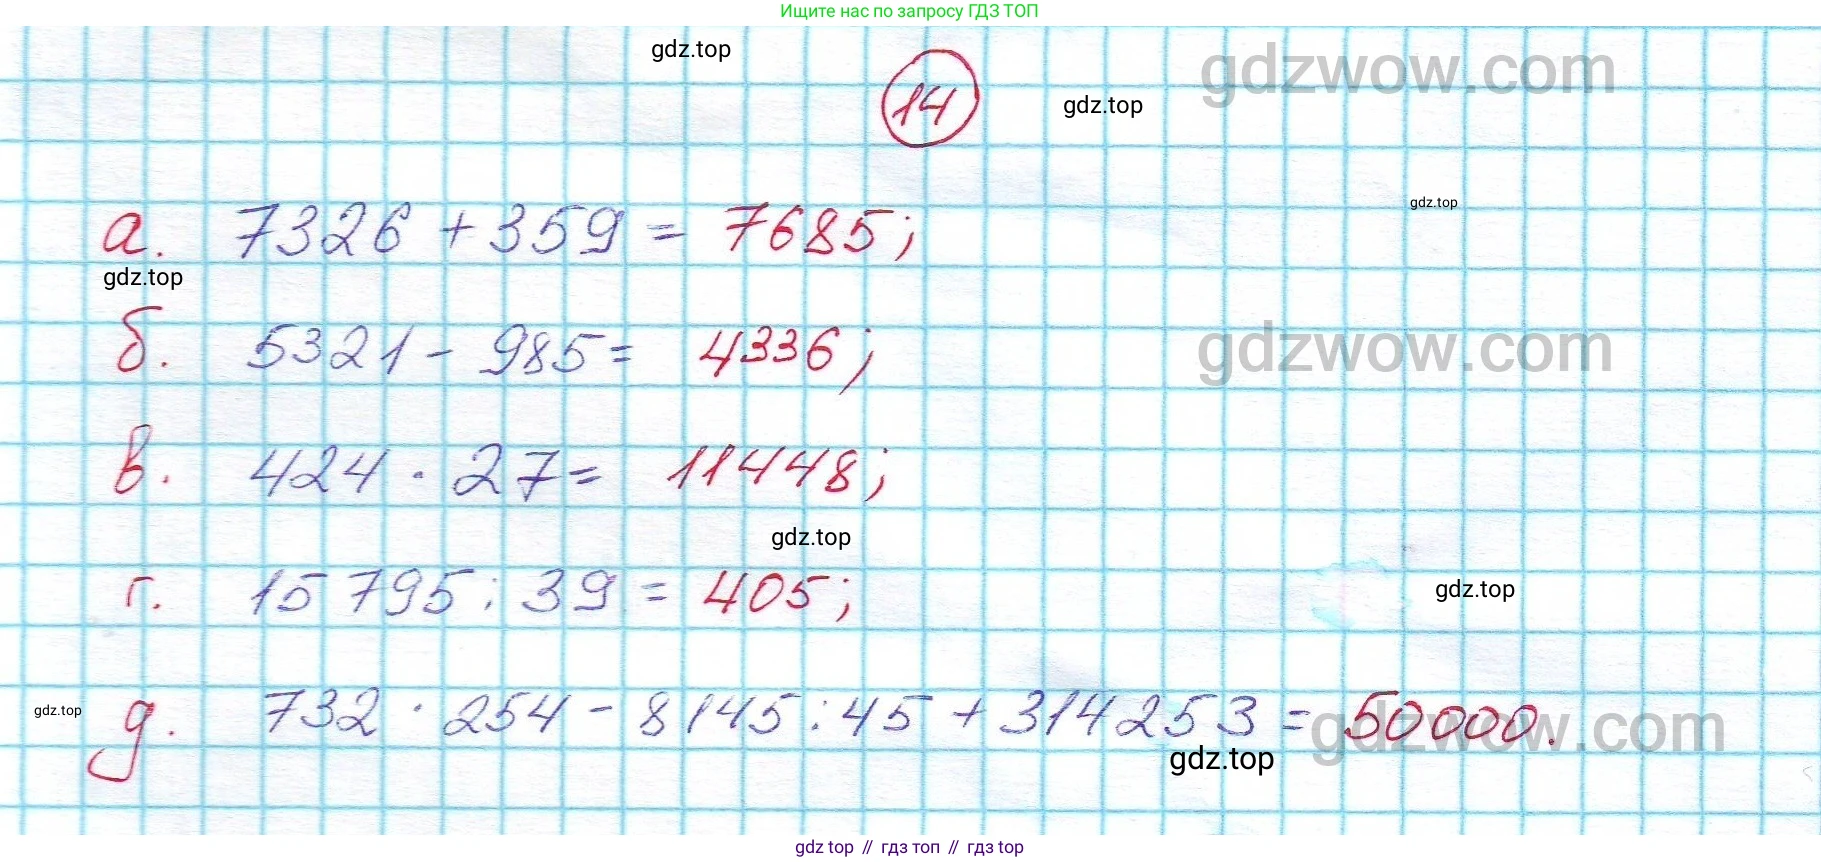 Ищите нас по запросу ГДЗ ТОП
gdz.top
14
gdz.top
gdzwow.com
gdz.top
а. 7326 + 359 = 7685;
gdz.top
б. 5321 - 985 = 4336;
gdzwow.com
в. 424 · 27 = 11448;
gdz.top
г. 15 795 : 39 = 405;
gdz.top
gdz.top
д. 732 · 254 - 8145 : 45 + 314253 = 50000.
gdzwow.com
gdz.top
gdz top // гдз топ // гдз top